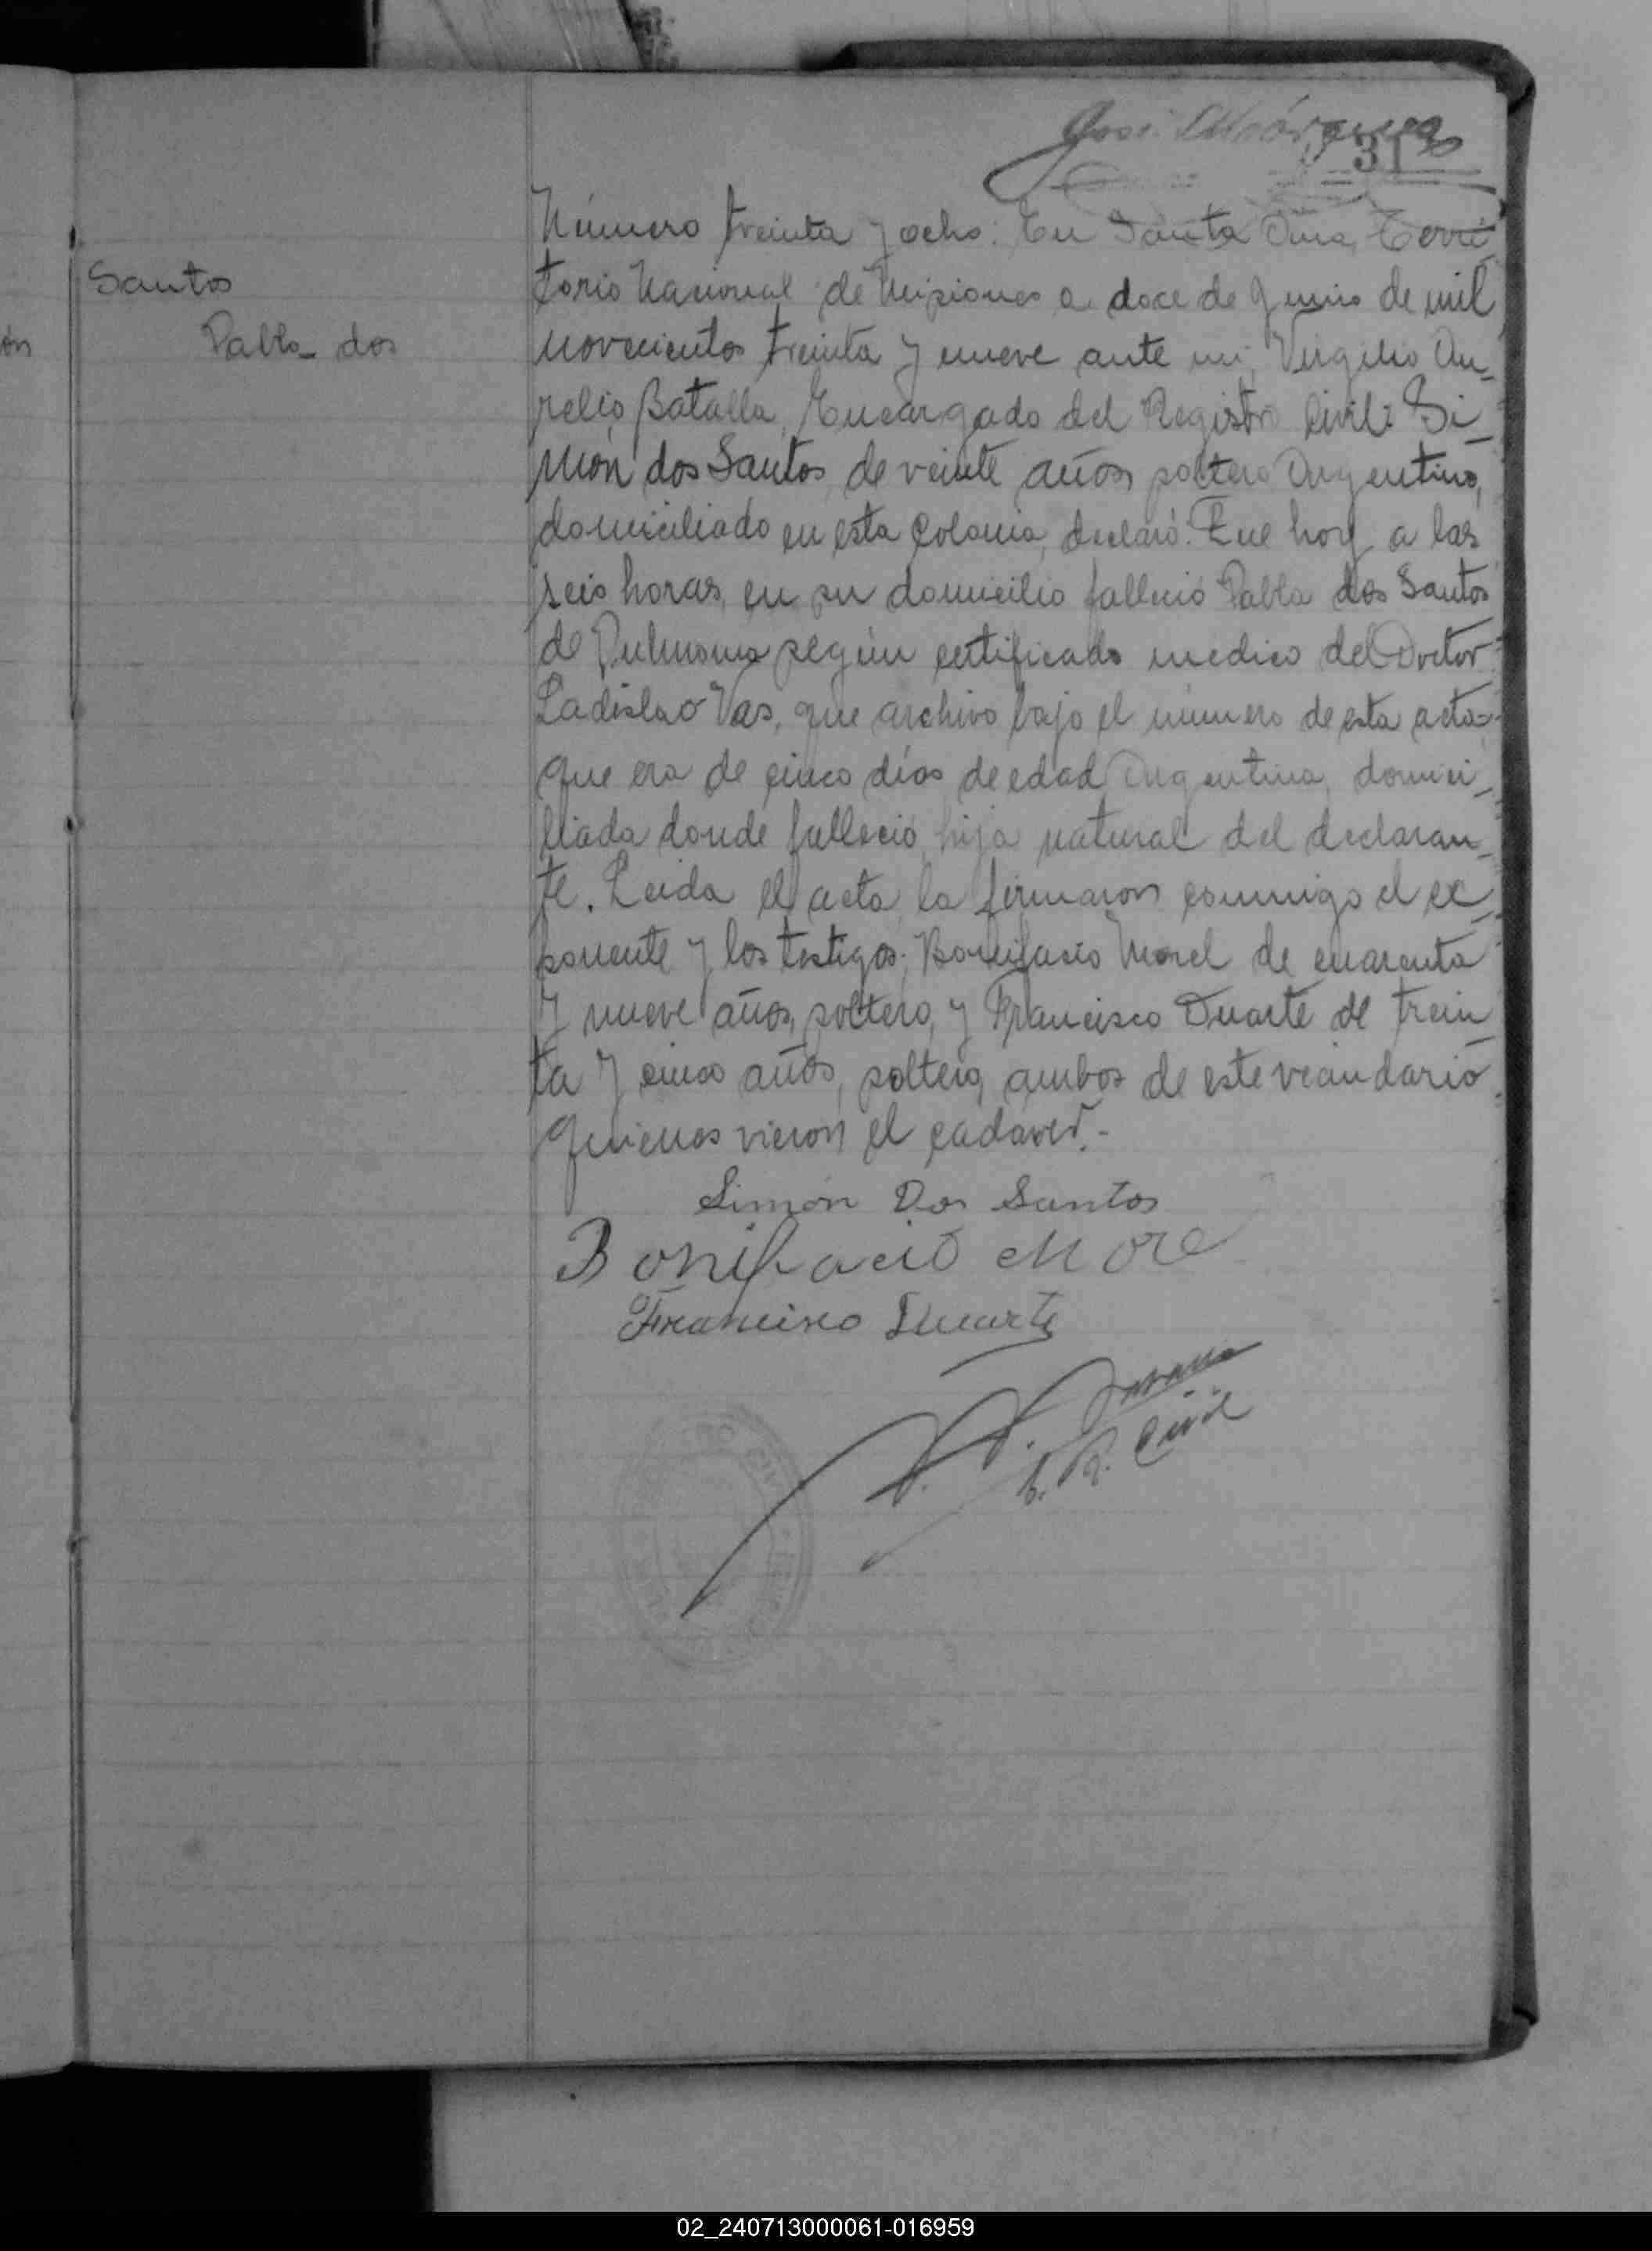 31
Santos
Pabla dos
Número treinta y ocho: En Santa Ana, Terri-
torio Nacional de Misiones a doce de Junio de mil
novecientos treinta y nueve ante mi, Virgilio Au-
relio Batalla, Encargado del Registro Civil: Si-
món dos Santos, de veinte años, soltero Argentino,
domiciliado en esta Colonia, declaró: Que hoy a las
seis horas, en su domicilio falleció Pabla dos Santos
de según certificado medico del Doctor
Ladislao Vas, que archivo bajo el número de esta acta
que era de cinco días de edad Argentina, domici-
liada donde falleció, hija natural del declaran-
te. Leida el acta, la firmaron conmigo el ex-
ponente y los testigos: Bonifacio Morel de cuarenta
y nueve años, soltero, y Francisco Duarte de trein-
ta y cinco años, soltero, ambos de este vecindario
quienes vieron el cadáver.-
Simón Dos Santos
Bonifacio More
Francisco Duarte
E. R. Civil
02_240713000061-016959